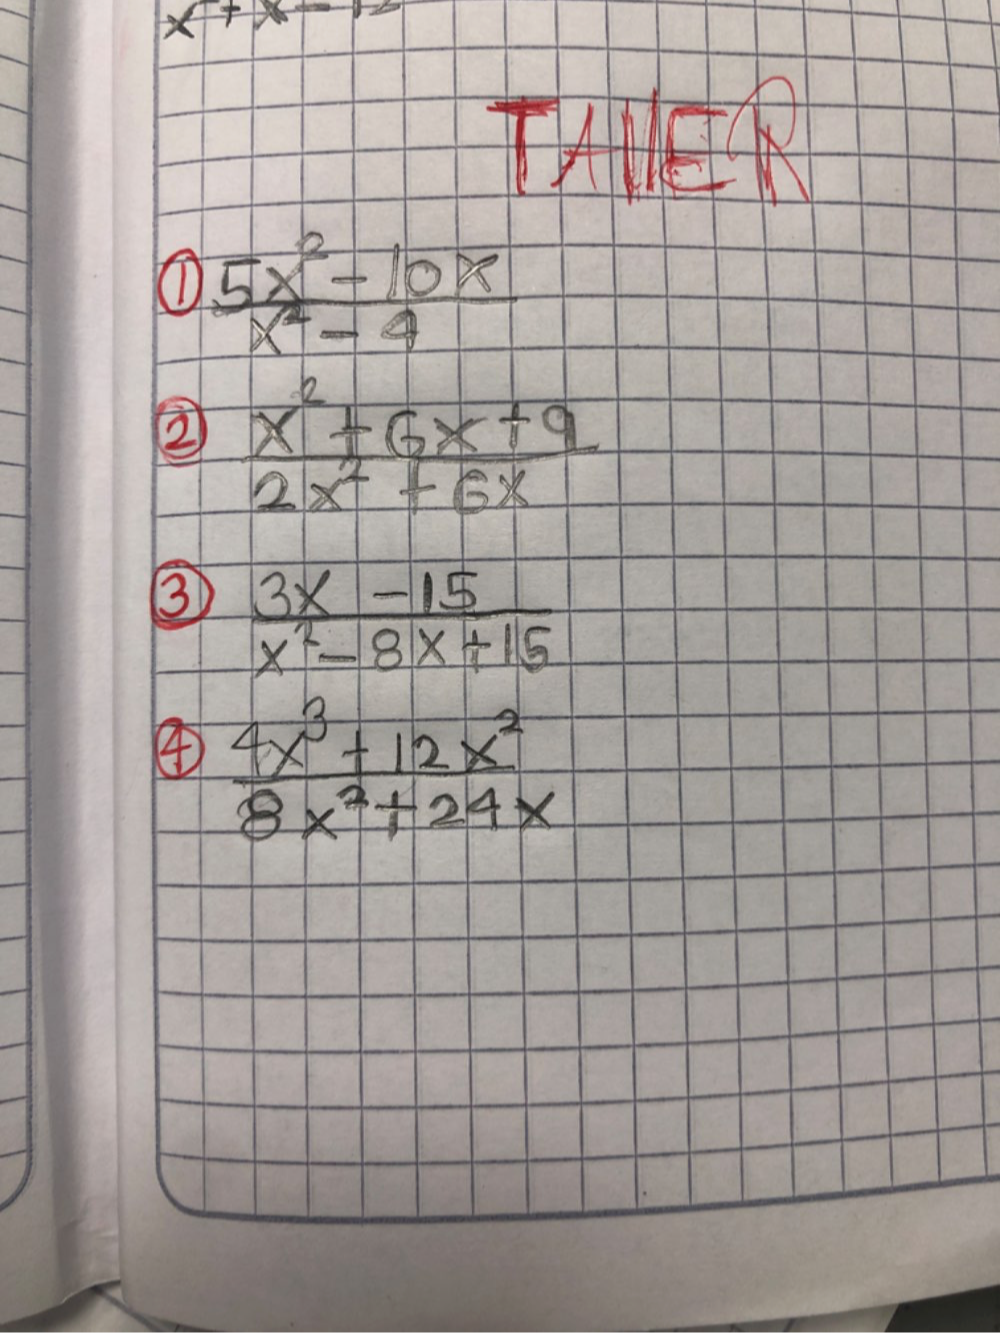 x² + x - 12
TALLER
① 5x² - 10x
x² - 4
② x² + 6x + 9
2x² + 6x
③ 3x - 15
x² - 8x + 15
④ 4x³ + 12x²
8x² + 24x